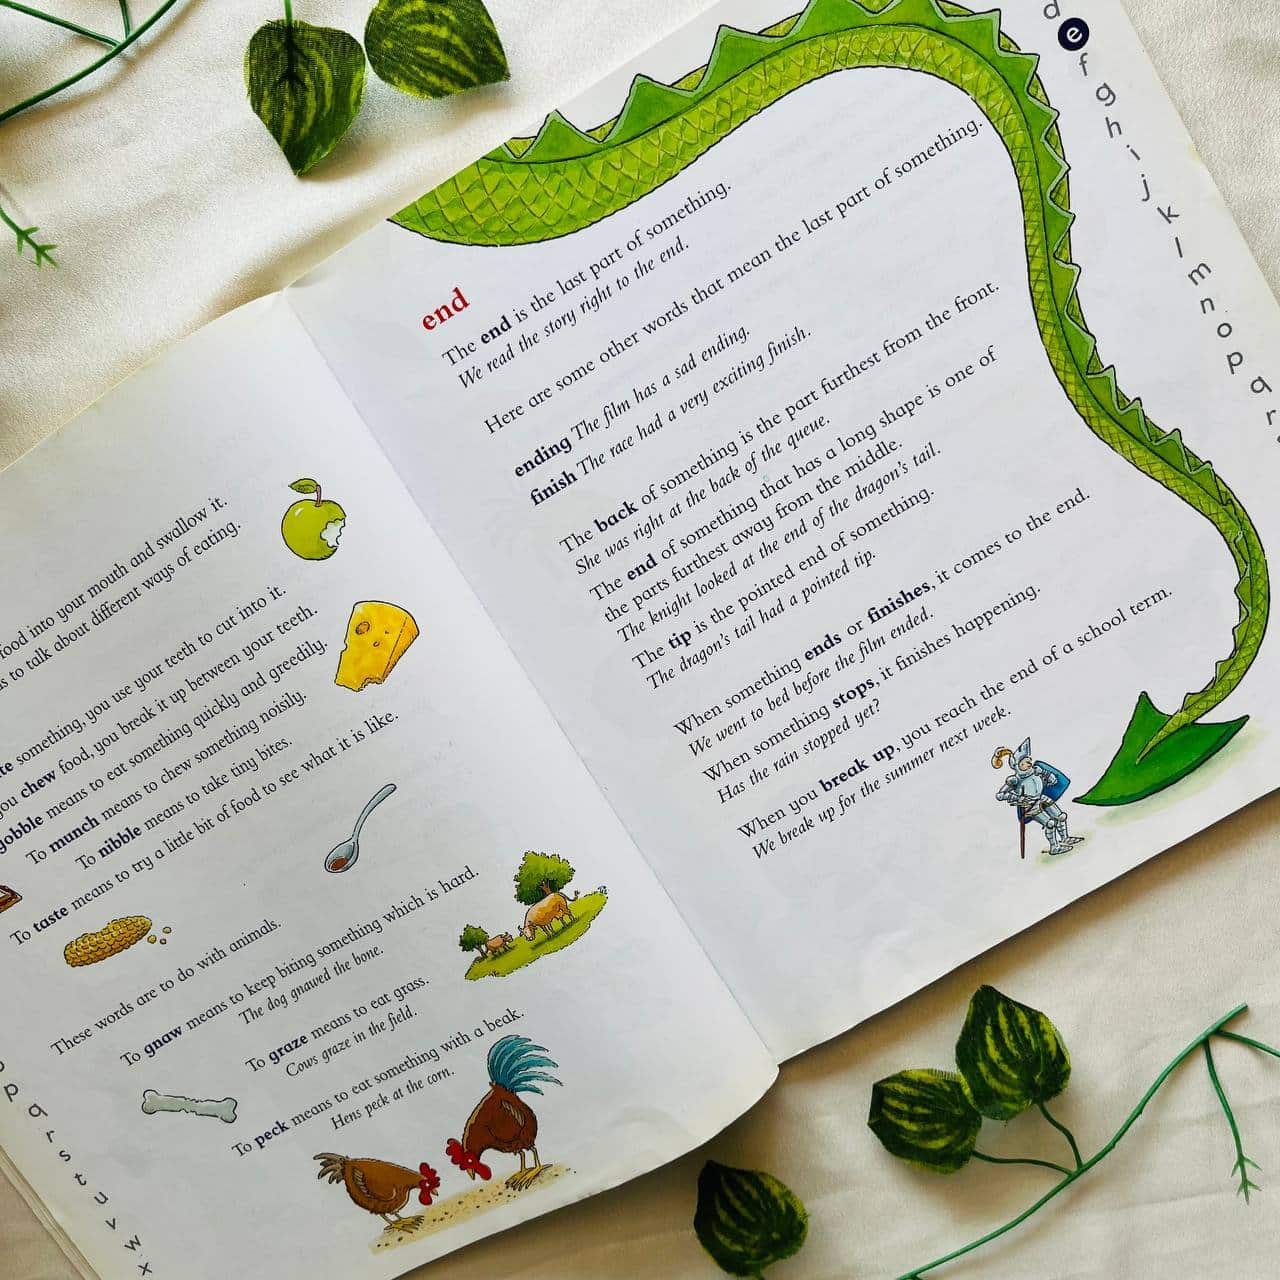 food into your mouth and swallow it.
to talk about different ways of eating.
something, you use your teeth to cut into it.
you chew food, you break it up between your teeth.
gobble means to eat something quickly and greedily.
To munch means to chew something noisily.
To nibble means to take tiny bites.
To taste means to try a little bit of food to see what it is like.
These words are to do with animals.
To gnaw means to keep biting something which is hard.
The dog gnawed the bone.
To graze means to eat grass.
Cows graze in the field.
To peck means to eat something with a beak.
Hens peck at the corn.
p
q
r
s
t
u
v
w
x
end
The end is the last part of something.
We read the story right to the end.
Here are some other words that mean the last part of something.
ending The film has a sad ending.
finish The race had a very exciting finish.
The back of something is the part furthest from the front.
She was right at the back of the queue.
The end of something that has a long shape is one of
the parts furthest away from the middle.
The knight looked at the end of the dragon's tail.
The tip is the pointed end of something.
The dragon's tail had a pointed tip.
When something ends or finishes, it comes to the end.
We went to bed before the film ended.
When something stops, it finishes happening.
Has the rain stopped yet?
When you break up, you reach the end of a school term.
We break up for the summer next week.
d
e
f
g
h
i
j
k
l
m
n
o
p
q
r